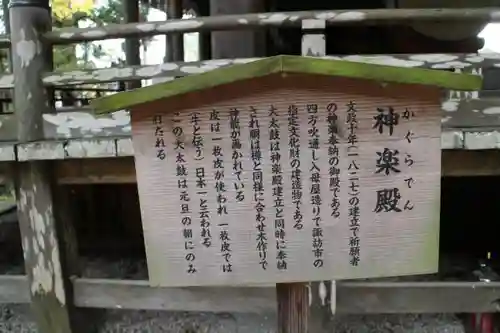 かぐらでん
神楽殿
文政十年(一八二七)の建立で祈願者
の神楽奉納の御殿である
四方吹通し入母屋造りで諏訪市の
指定文化財の建造物である
大太鼓は神楽殿建立と同時に奉納
され胴は樽と同様に合わせ木作りで
神龍が画かれている
皮は一枚皮が使われ一枚皮では
(牛と伝う)日本一と云われる
この大太鼓は元旦の朝にのみ
打たれる